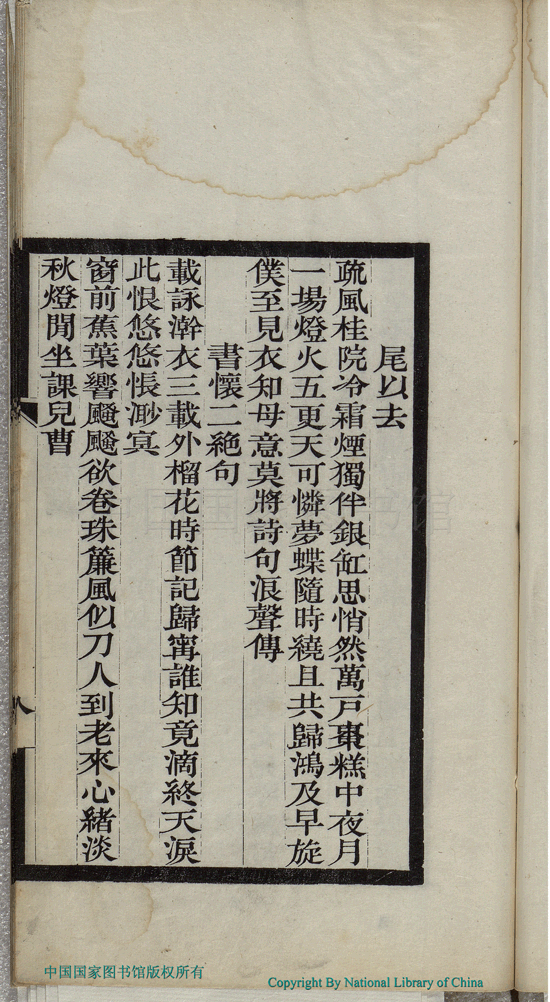 尾以去
疏風桂院冷霜煙獨伴銀缸思悄然萬戶棗糕中夜月
一場燈火五更天可憐夢蝶隨時繞且共歸鴻及早旋
僕至見衣知母意莫將詩句浪聲傳
書懷二絶句
載詠澣衣三載外榴花時節記歸寗誰知竟滴終天淚
此恨悠悠悵渺冥
窗前蕉葉響颼颼欲卷珠簾風似刀人到老來心緒淡
秋燈閒坐課兒曹
八
中国国家图书馆
中国国家图书馆版权所有
Copyright By National Library of China